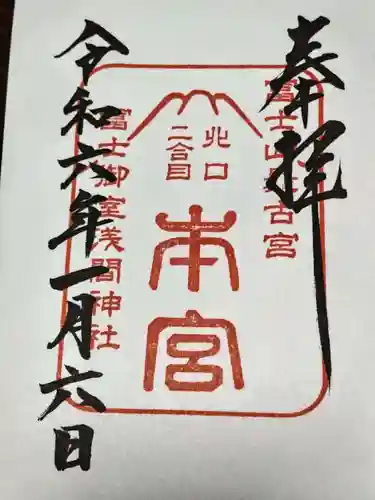 奉拝
富士山最古宮
北口
二合目
本宮
冨士御室浅間神社
令和六年一月六日